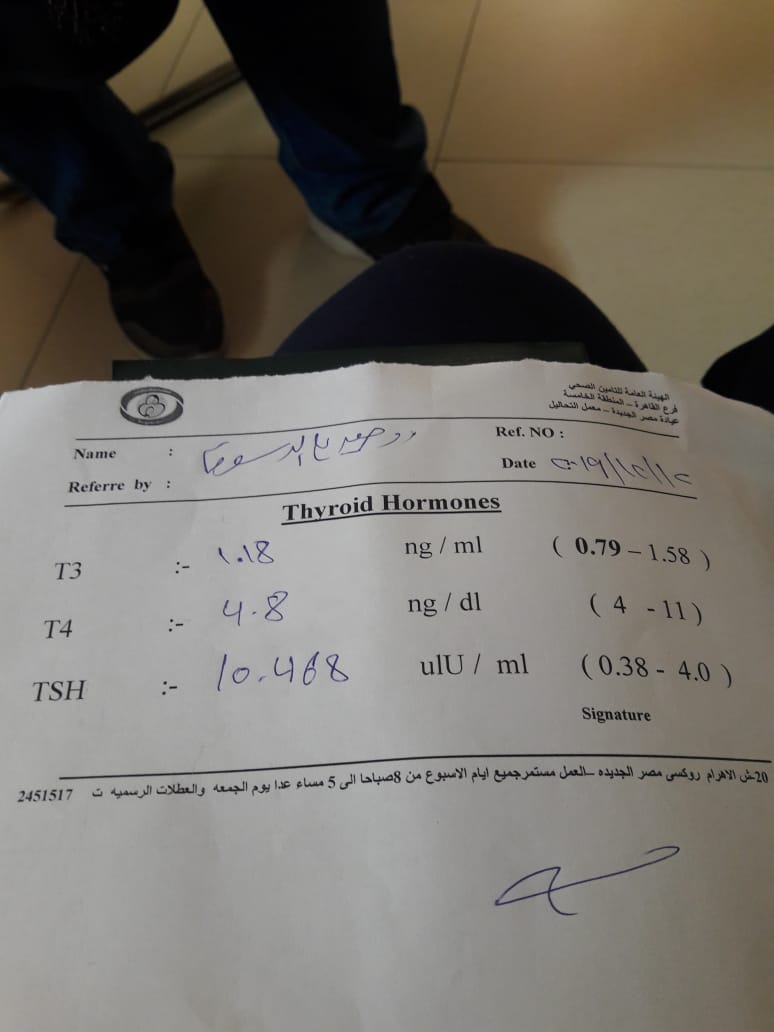 الهيئة العامة للتامين الصحي
فرع القاهرة – المنطقة الخامسة
عيادة مصر الجديدة – معمل التحاليل
Name :
Ref. NO :
Referre by :
Date
Thyroid Hormones
T3 :- 1.18 ng / ml ( 0.79 – 1.58 )
T4 :- 4.8 ng / dl ( 4 - 11 )
TSH :- 10.468 uIU / ml ( 0.38 - 4.0 )
Signature
20-ش الاهرام روكسى مصر الجديده –العمل مستمرجميع ايام الاسبوع من 8صباحا الى 5 مساء عدا يوم الجمعه والعطلات الرسميه ت 2451517